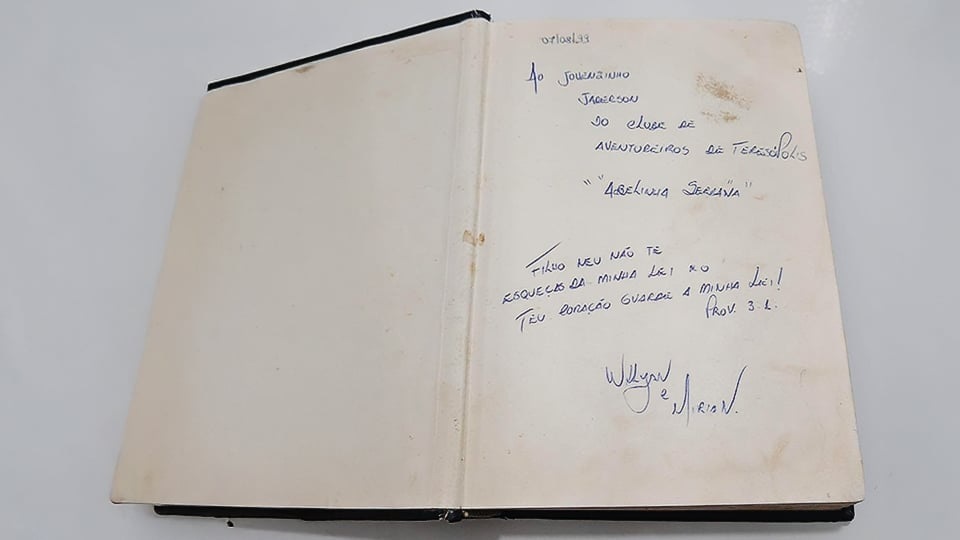 07/08/99
Ao Jovenzinho
Jaderson
Do Clube de
Aventureiros de Teresópolis
"Abelinha Serrana"
Filho meu não te
esqueças da minha lei e o
Teu coração guarde a minha lei!
Prov. 3.1.
Willyan
e
Mirian.